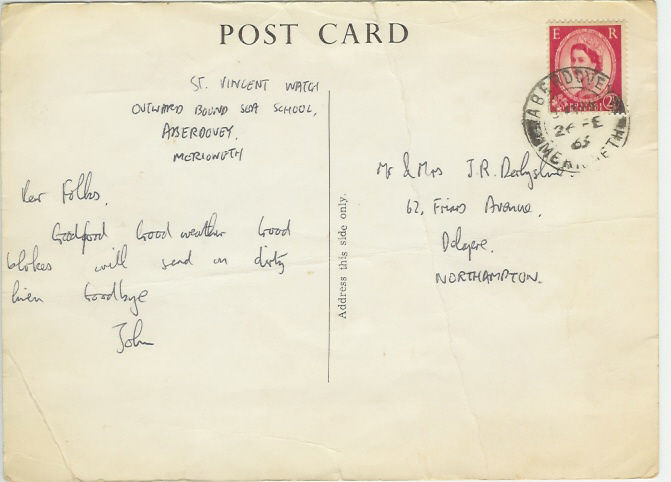 POST CARD
E R
ABERDOVEY
26 FE
63
MERIONETH
ST. VINCENT WATCH
OUTWARD BOUND SEA SCHOOL,
ABERDOVEY.
MERIONETH
Dear Folks,
Good food Good weather Good
blokes will send on dirty
linen Goodbye
John
Address this side only.
Mr & Mrs J.R. Derbyshire.
62, Friars Avenue,
Delapre.
NORTHAMPTON.